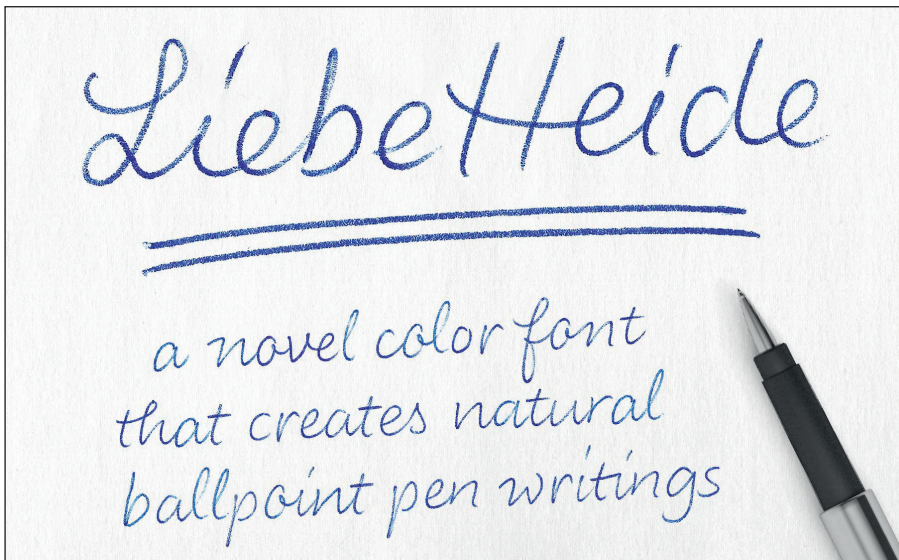 LiebeHeide
a novel color font
that creates natural
ballpoint pen writings